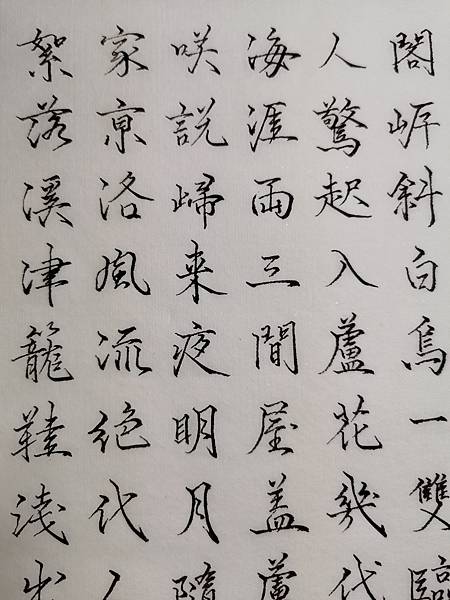 閣岸斜白鳥一雙臨
人驚起入蘆花幾代
海涯兩三間屋蓋蘆
咲說歸来夜明月隨
家京洛風流絕代人
絮落溪津籠鞋淺出